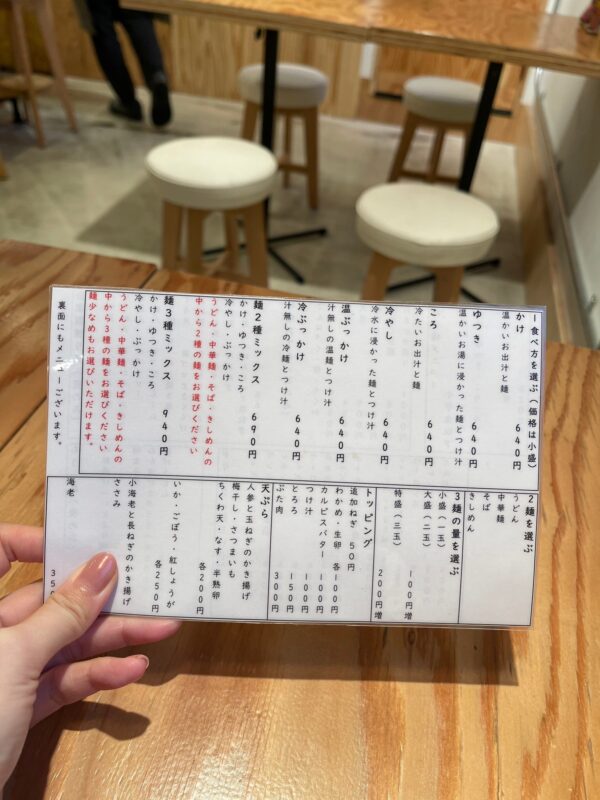 1食べ方を選ぶ(価格は小盛)
かけ 640円
温かいお出汁と麺
ゆつき 640円
温かいお湯に浸かった麺とつけ汁
ころ 640円
冷たいお出汁と麺
冷やし 640円
冷水に浸かった麺とつけ汁
温ぶっかけ 640円
汁無しの温麺とつけ汁
冷ぶっかけ 640円
汁無しの冷麺とつけ汁
麺2種ミックス 690円
かけ・ゆつき・ころ
冷やし・ぶっかけ
うどん・中華麺・そば・きしめんの
中から2種の麺をお選びください
麺3種ミックス 940円
かけ・ゆつき・ころ
冷やし・ぶっかけ
うどん・中華麺・そば・きしめんの
中から3種の麺をお選びください
麺少なめもお選びいただけます。
裏面にもメニューございます。
2麺を選ぶ
うどん
中華麺
そば
きしめん
3麺の量を選ぶ
小盛(一玉)
大盛(二玉) 100円増
特盛(三玉) 200円増
トッピング
追加ねぎ 50円
わかめ・生卵 各100円
カルピスバター 100円
つけ汁 100円
とろろ 150円
ぶた肉 300円
天ぷら
人参と玉ねぎのかき揚げ
梅干し・さつまいも
ちくわ天・なす・半熟卵
各200円
いか・ごぼう・紅しょうが
各250円
小海老と長ねぎのかき揚げ
ささみ
海老
350